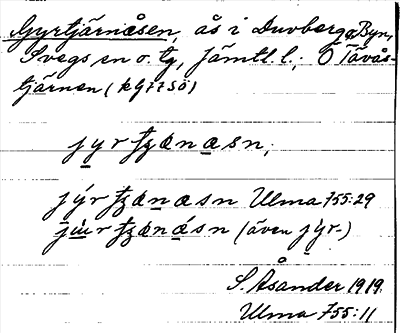 Gyrtjärnåsen, ås i Duvberg, Byn,
Svegs sn o. tg, Jämtl. l.; Ö Tävås-
tjärnen (kg7750)
jyrtjänasn,
jýrtjänasn Ulma 755:29
jùrtjänásn (även jyr-)
S. Åsander 1919.
Ulma 755:11